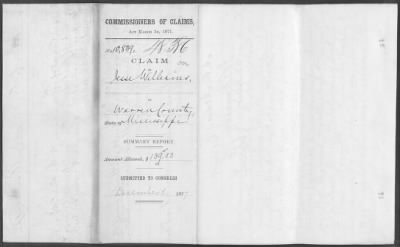 COMMISSIONERS OF CLAIMS,
Act March 3d, 1871.
No.
CLAIM
on
Jesse Williams,
of
Warren County,
State of Mississippi
SUMMARY REPORT.
Amount Allowed, $
SUBMITTED TO CONGRESS
December 187